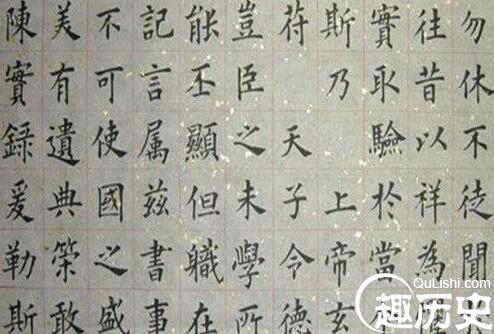 勿休不徒聞
往昔以祥為
實取驗於當
斯乃 上帝玄
苻 天子令德
豈臣之未學所
能丕顯但職在
記言属茲書事
不可使國之盛
美有遺典策敢
陳實録爰勒斯
QuLishi.com
趣历史